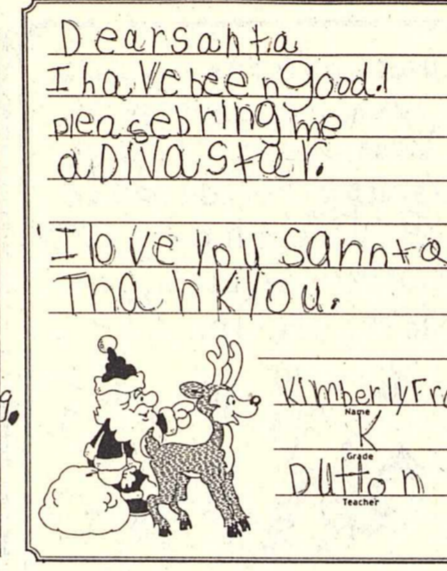 Dearsanta
I haVebeengood.!
pleasebring me
a DIVastar.
I love you Sannta
ThankYou.
9.
KimberlyFr
Name
K
Grade
Dutton
Teacher